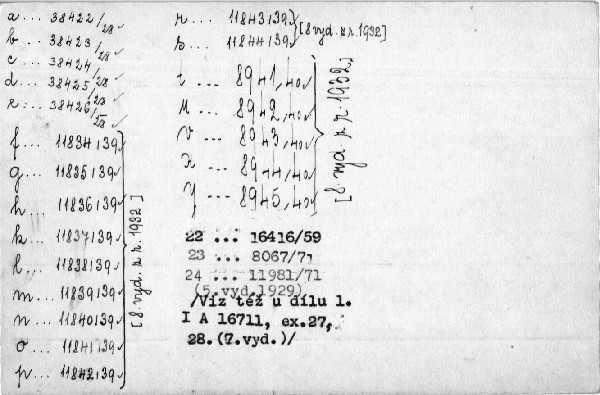 a ... 38422/28
b ... 38423/28
c ... 38424/28
d ... 38425/28
e ... 38426/28
f ... 11834/39
g ... 11835/39
h ... 11836/39
k ... 11837/39
l ... 11838/39
m ... 11839/39
n ... 11840/39
o ... 11841/39
p ... 11842/39
[8 vyd. z r. 1932]
r ... 11843/39
s ... 11844/39
[8 vyd. z r. 1932]
t ... 8941/40
u ... 8942/40
v ... 8943/40
x ... 8944/40
y ... 8945/40
[8 vyd z r. 1932]
22 ... 16416/59
23 ... 8067/71
24 ... 11981/71
(5.vyd.1929)
/Viz též u dílu 1.
I A 16711, ex.27,
28.(7.vyd.)/